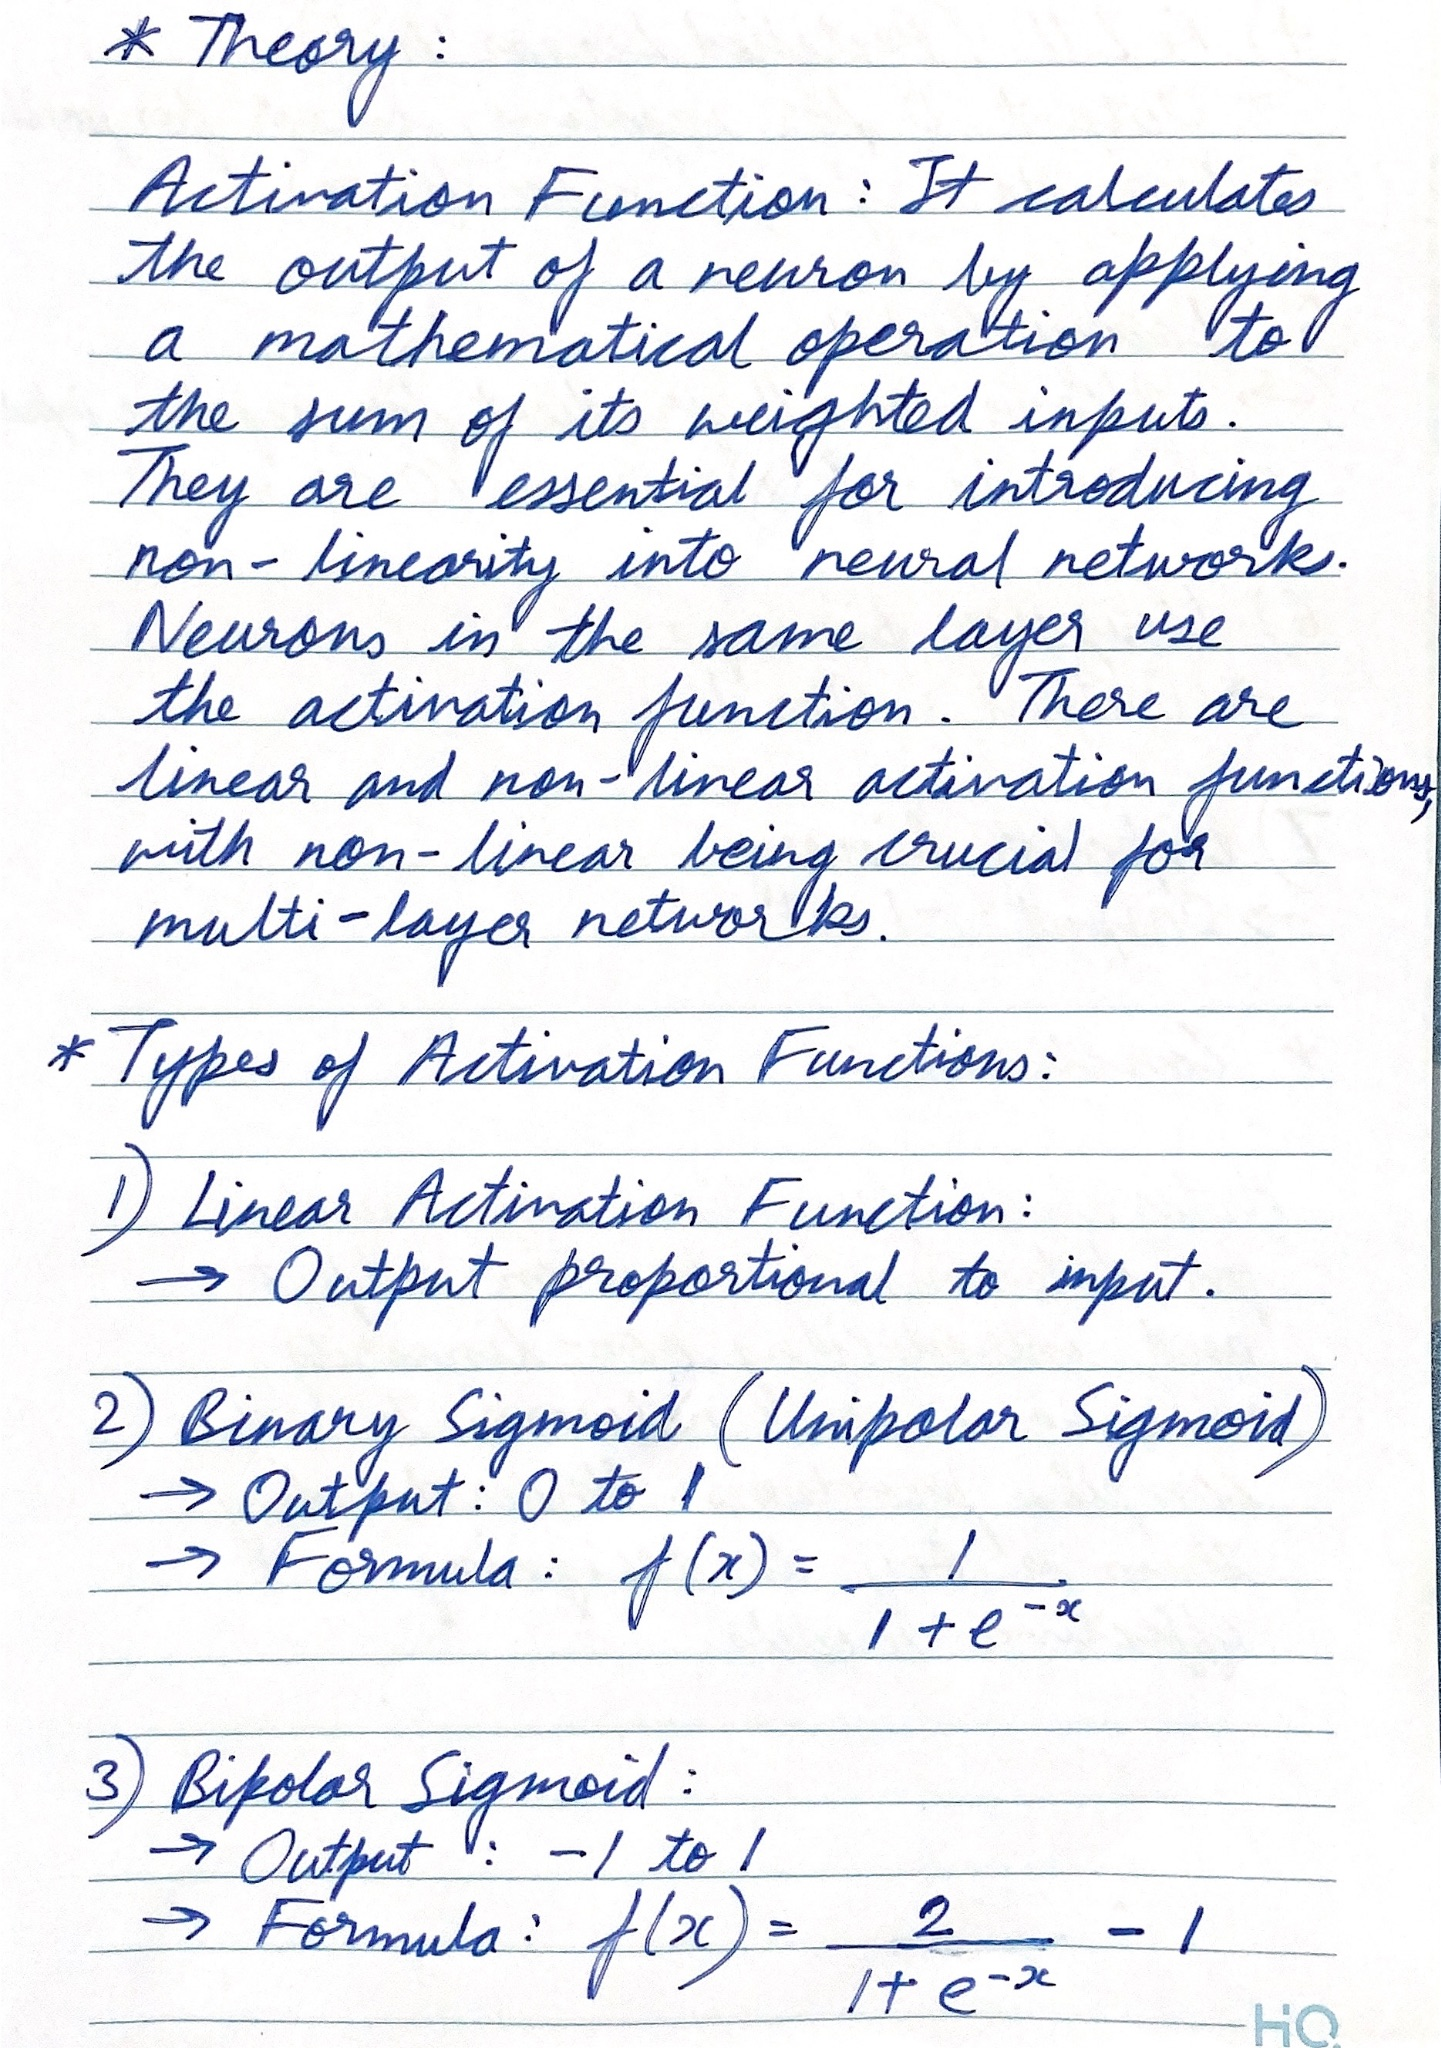 * Theory :
Activation Function : It calculates
the output of a neuron by applying
a mathematical operation to
the sum of its weighted inputs.
They are essential for introducing
non-linearity into neural networks.
Neurons in the same layer use
the activation function. There are
linear and non-linear activation functions,
with non-linear being crucial for
multi-layer networks.
* Types of Activation Functions :
1) Linear Activation Function :
→ Output proportional to input.
2) Binary Sigmoid (Unipolar Sigmoid)
→ Output : 0 to 1
→ Formula : f(x) = 1 / (1 + e^-x)
3) Bipolar Sigmoid :
→ Output : -1 to 1
→ Formula : f(x) = 2 / (1 + e^-x) - 1
HQ